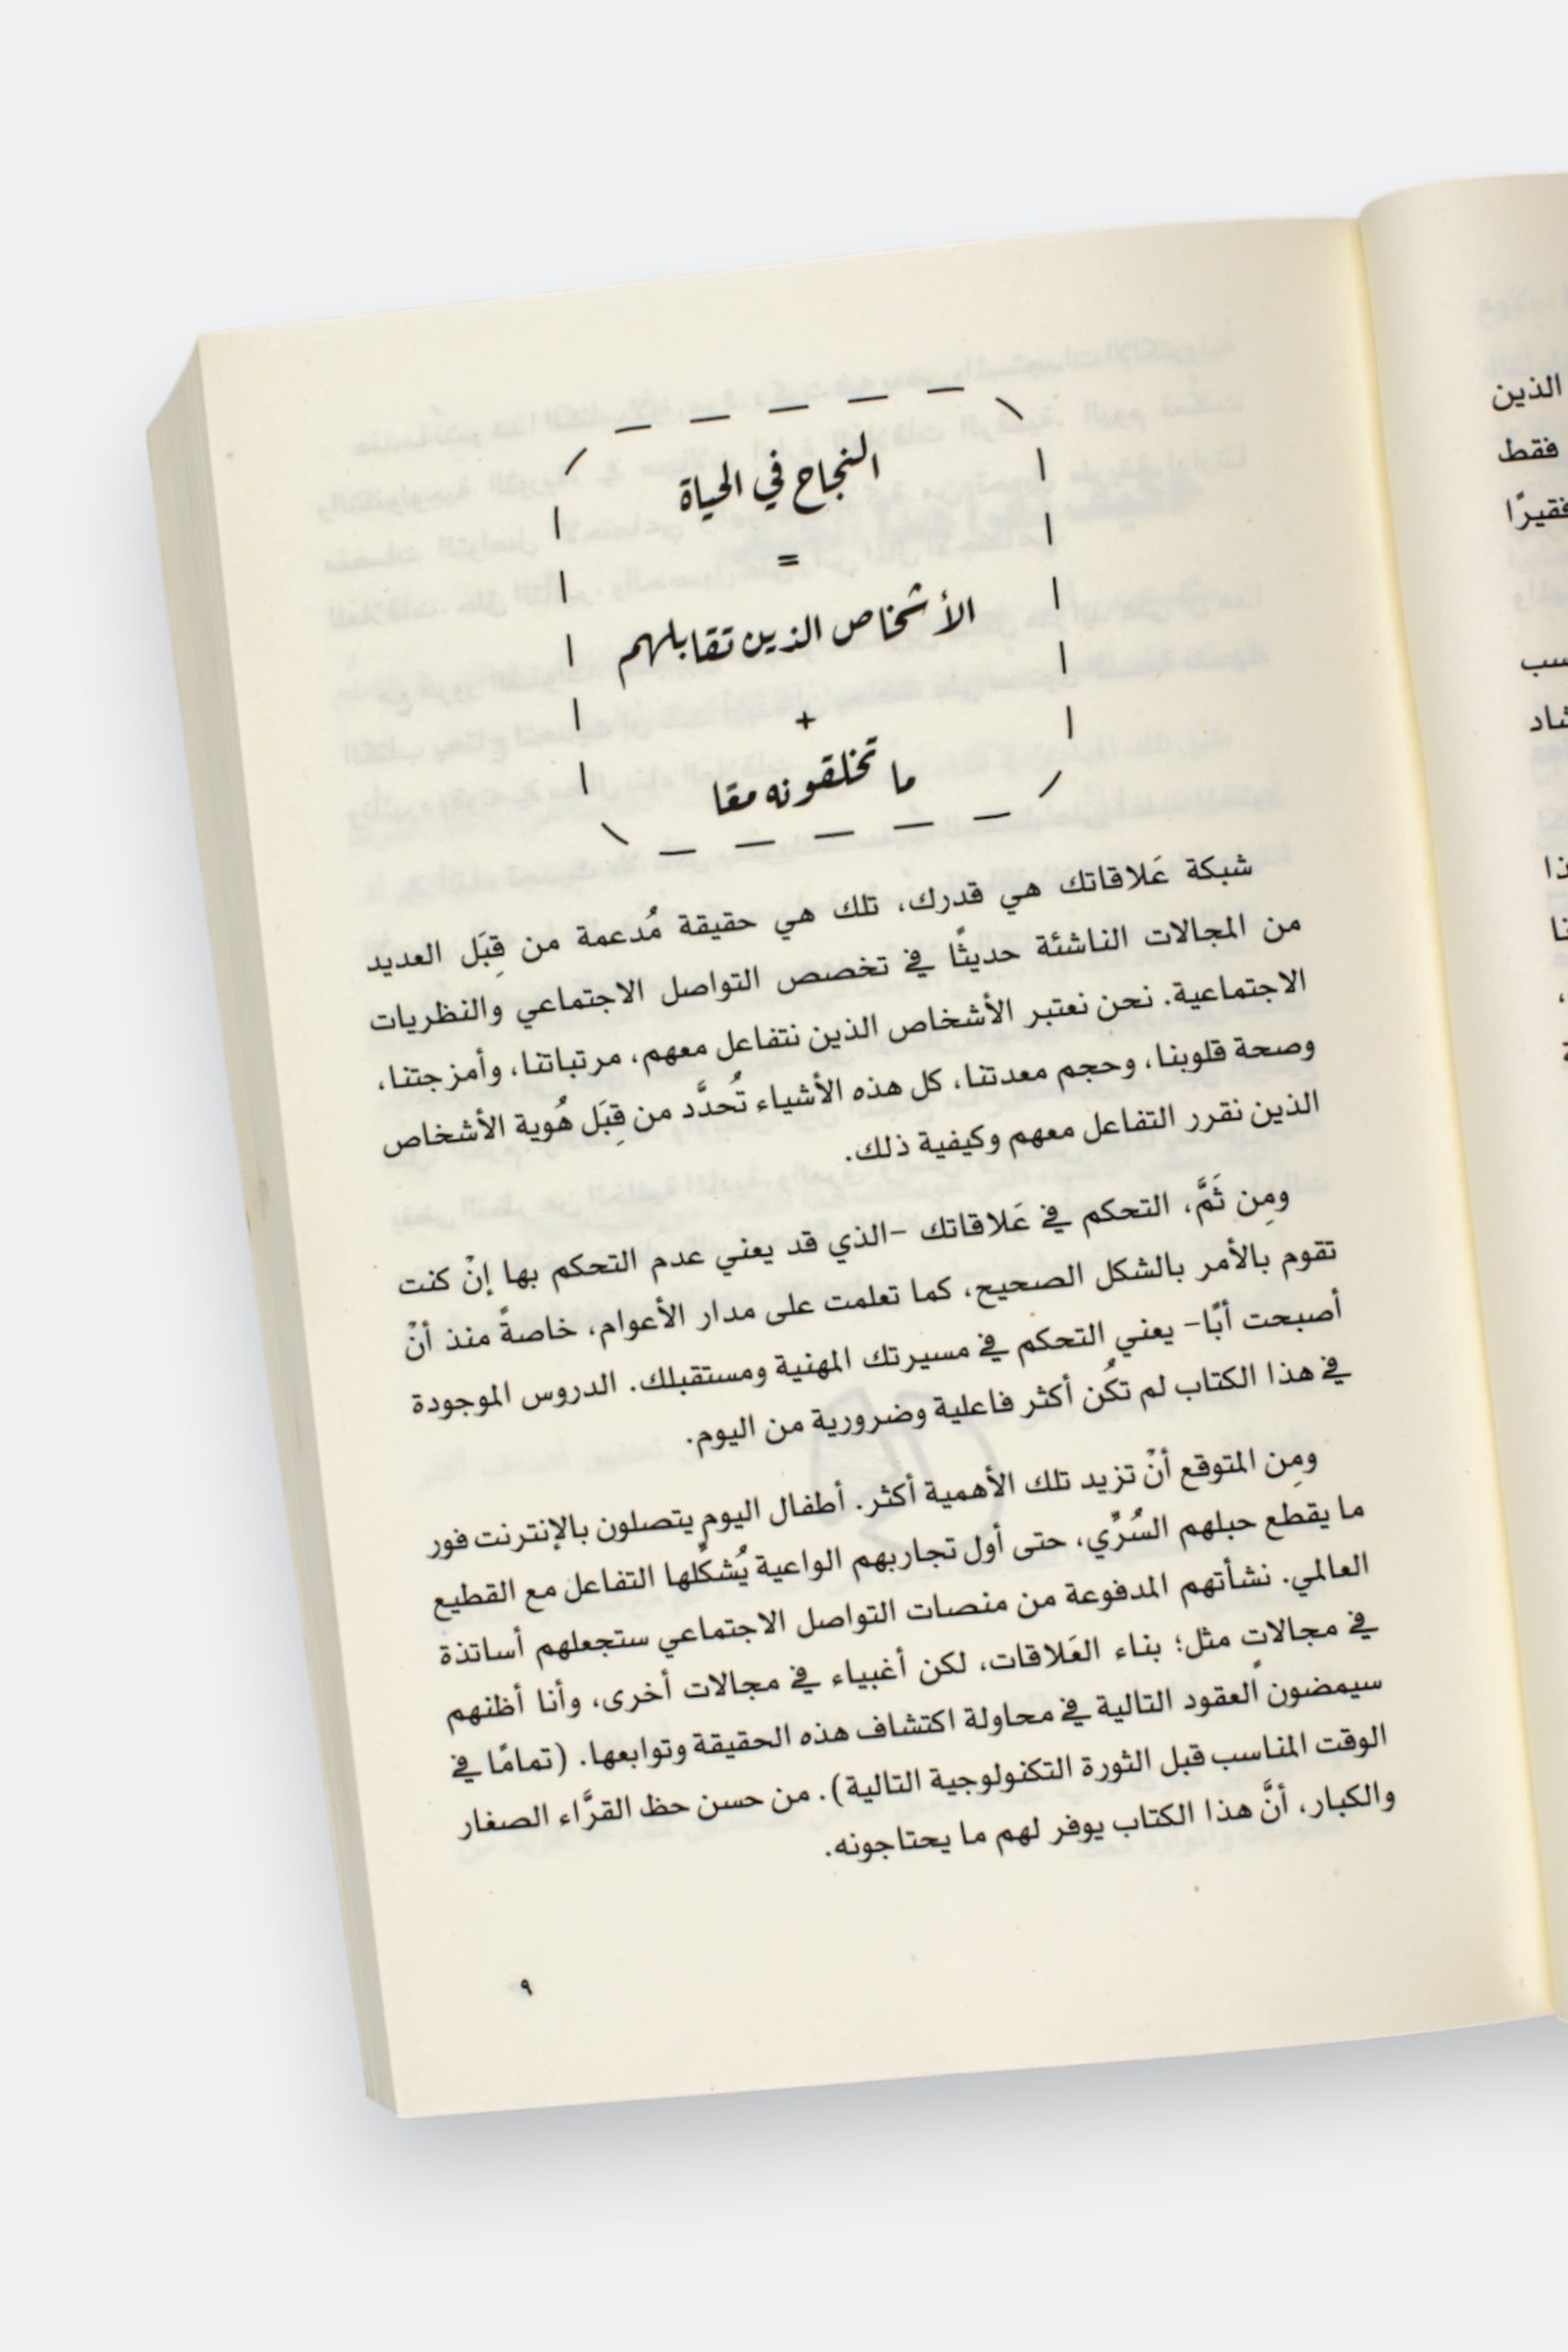 النجاح في الحياة
=
الأشخاص الذين تقابلهم
+
ما تخلقونه معًا
شبكة عَلاقاتك هي قدرك، تلك هي حقيقة مُدعمة من قِبَل العديد
من المجالات الناشئة حديثًا في تخصص التواصل الاجتماعي والنظريات
الاجتماعية. نحن نعتبر الأشخاص الذين نتفاعل معهم، مرتباتنا، وأمزجتنا،
وصحة قلوبنا، وحجم معدتنا، كل هذه الأشياء تُحدَّد من قِبَل هُوية الأشخاص
الذين نقرر التفاعل معهم وكيفية ذلك.
ومِن ثَمَّ، التحكم في عَلاقاتك -الذي قد يعني عدم التحكم بها إنْ كنت
تقوم بالأمر بالشكل الصحيح، كما تعلمت على مدار الأعوام، خاصةً منذ أنْ
أصبحت أبًا- يعني التحكم في مسيرتك المهنية ومستقبلك. الدروس الموجودة
في هذا الكتاب لم تكُن أكثر فاعلية وضرورية من اليوم.
ومِن المتوقع أنْ تزيد تلك الأهمية أكثر. أطفال اليوم يتصلون بالإنترنت فور
ما يقطع حبلهم السُرِّي، حتى أول تجاربهم الواعية يُشكِّلها التفاعل مع القطيع
العالمي. نشأتهم المدفوعة من منصات التواصل الاجتماعي ستجعلهم أساتذة
في مجالاتٍ مثل؛ بناء العَلاقات، لكن أغبياء في مجالات أخرى، وأنا أظنهم
سيمضون العقود التالية في محاولة اكتشاف هذه الحقيقة وتوابعها. (تمامًا في
الوقت المناسب قبل الثورة التكنولوجية التالية). من حسن حظ القرَّاء الصغار
والكبار، أنَّ هذا الكتاب يوفر لهم ما يحتاجونه.
٩
الذين
فقط